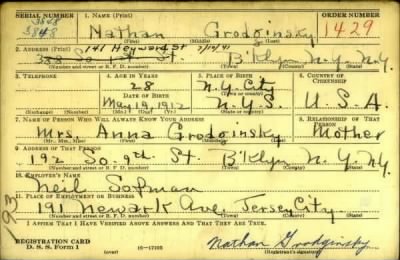 SERIAL NUMBER 1. NAME (Print) ORDER NUMBER
3848 Nathan Grodginsky 1429
(First) (Middle) (Last)
2. ADDRESS (Print) 141 Heyward St
So. 1st St. B'klyn N.Y. N.Y.
(Number and street or R. F. D. number) (Town) (County) (State)
3. TELEPHONE 4. AGE IN YEARS 5. PLACE OF BIRTH 6. COUNTRY OF CITIZENSHIP
28 N.Y. City
DATE OF BIRTH (Town or county)
May 19, 1912 N.Y.S. U.S.A.
(Exchange) (Number) (Mo.) (Day) (Yr.) (State or country)
7. NAME OF PERSON WHO WILL ALWAYS KNOW YOUR ADDRESS 8. RELATIONSHIP OF THAT PERSON
Mrs. Anna Grodginsky Mother
(Mr., Mrs., Miss) (First) (Middle) (Last)
9. ADDRESS OF THAT PERSON
192 So. St. B'klyn N.Y. N.Y.
(Number and street or R. F. D. number) (Town) (County) (State)
10. EMPLOYER'S NAME
Neil
11. PLACE OF EMPLOYMENT OR BUSINESS
191 Newark Ave, Jersey City
(Number and street or R. F. D. number) (Town) (County) (State)
I AFFIRM THAT I HAVE VERIFIED ABOVE ANSWERS AND THAT THEY ARE TRUE.
REGISTRATION CARD
D. S. S. Form 1 Nathan Grodginsky
(Registrant's signature)